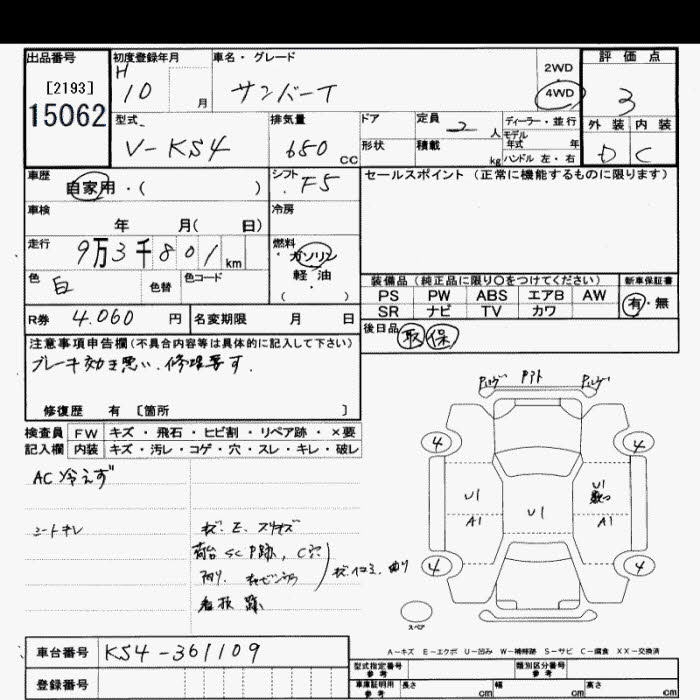 出品番号
[2193]
15062
初度登録年月
H
10 月
車名・グレード
サンバーT
2WD
4WD
評価点
3
外装 内装
D C
型式
V-KS4
排気量
650 CC
ドア
形状
定員 2 人
積載 kg
ディーラー・並行
モデル
年式 年
ハンドル 左・右
車歴
自家用・( )
シフト
F5
セールスポイント(正常に機能するものに限ります)
車検
年 月( 日)
冷房
走行
9万3千801 km
燃料
・ガソリン
軽・油
( )
色 白 色替
色コード
装備品(純正品に限り○をつけてください)
PS PW ABS エアB AW
SR ナビ TV カワ
新車保証書
有・無
R券 4.060 円
名変期限 月 日
後日品 取 保
注意事項申告欄(不具合内容等は具体的に記入して下さい)
ブレーキ効き悪い、修理要す。
修復歴 有 [箇所 ]
検査員 FW キズ・飛石・ヒビ割・リペア跡・×要
記入欄 内装 キズ・汚レ・コゲ・穴・スレ・キレ・破レ
AC 冷えず
シートキレ
キズ、E、スリキズ
荷台 SC P跡, C穴
4 4
U1 U1 U1
A1 A1
4 4
スペア
A-キズ E-エクボ U-凹み W-補修跡 S-サビ C-腐食 XX-交換済
車台番号 KS4-361109
登録番号
型式指定番号
参考
類別区分番号
参考
車庫証明用
参考
長さ cm 幅 cm 高さ cm